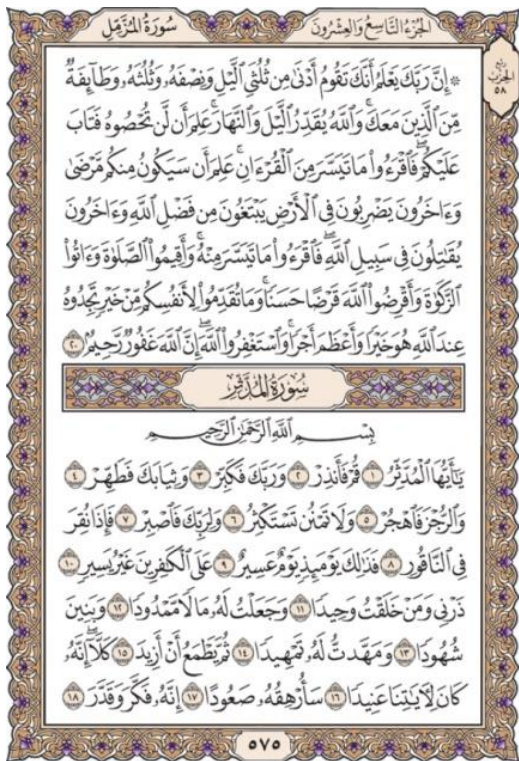 سُورَةُ الْمُزَّمِّلِ
الجُزْءُ التَّاسِعُ وَالعِشْرُونَ
رُبع
الحِزْب
٥٨
۞ إِنَّ رَبَّكَ يَعْلَمُ أَنَّكَ تَقُومُ أَدْنَىٰ مِن ثُلُثَيِ ٱلَّيْلِ وَنِصْفَهُۥ وَثُلُثَهُۥ وَطَآئِفَةٌ
مِّنَ ٱلَّذِينَ مَعَكَۚ وَٱللَّهُ يُقَدِّرُ ٱلَّيْلَ وَٱلنَّهَارَۚ عَلِمَ أَن لَّن تُحْصُوهُ فَتَابَ
عَلَيْكُمْۖ فَٱقْرَءُوا۟ مَا تَيَسَّرَ مِنَ ٱلْقُرْءَانِۚ عَلِمَ أَن سَيَكُونُ مِنكُم مَّرْضَىٰ
وَءَاخَرُونَ يَضْرِبُونَ فِى ٱلْأَرْضِ يَبْتَغُونَ مِن فَضْلِ ٱللَّهِ وَءَاخَرُونَ
يُقَٰتِلُونَ فِى سَبِيلِ ٱللَّهِۖ فَٱقْرَءُوا۟ مَا تَيَسَّرَ مِنْهُۚ وَأَقِيمُوا۟ ٱلصَّلَوٰةَ وَءَاتُوا۟
ٱلزَّكَوٰةَ وَأَقْرِضُوا۟ ٱللَّهَ قَرْضًا حَسَنًاۚ وَمَا تُقَدِّمُوا۟ لِأَنفُسِكُم مِّنْ خَيْرٍ تَجِدُوهُ
عِندَ ٱللَّهِ هُوَ خَيْرًا وَأَعْظَمَ أَجْرًاۚ وَٱسْتَغْفِرُوا۟ ٱللَّهَۖ إِنَّ ٱللَّهَ غَفُورٌ رَّحِيمٌۢ ٢٠
سُورَةُ الْمُدَّثِّرِ
بِسْمِ ٱللَّهِ ٱلرَّحْمَٰنِ ٱلرَّحِيمِ
يَٰٓأَيُّهَا ٱلْمُدَّثِّرُ ١ قُمْ فَأَنذِرْ ٢ وَرَبَّكَ فَكَبِّرْ ٣ وَثِيَابَكَ فَطَهِّرْ ٤
وَٱلرُّجْزَ فَٱهْجُرْ ٥ وَلَا تَمْنُن تَسْتَكْثِرُ ٦ وَلِرَبِّكَ فَٱصْبِرْ ٧ فَإِذَا نُقِرَ
فِى ٱلنَّاقُورِ ٨ فَذَٰلِكَ يَوْمَئِذٍ يَوْمٌ عَسِيرٌ ٩ عَلَى ٱلْكَٰفِرِينَ غَيْرُ يَسِيرٍ ١٠
ذَرْنِى وَمَنْ خَلَقْتُ وَحِيدًا ١١ وَجَعَلْتُ لَهُۥ مَالًا مَّمْدُودًا ١٢ وَبَنِينَ
شُهُودًا ١٣ وَمَهَّدتُّ لَهُۥ تَمْهِيدًا ١٤ ثُمَّ يَطْمَعُ أَنْ أَزِيدَ ١٥ كَلَّآۖ إِنَّهُۥ
كَانَ لِـَٔايَٰتِنَا عَنِيدًا ١٦ سَأُرْهِقُهُۥ صَعُودًا ١٧ إِنَّهُۥ فَكَّرَ وَقَدَّرَ ١٨
٥٧٥